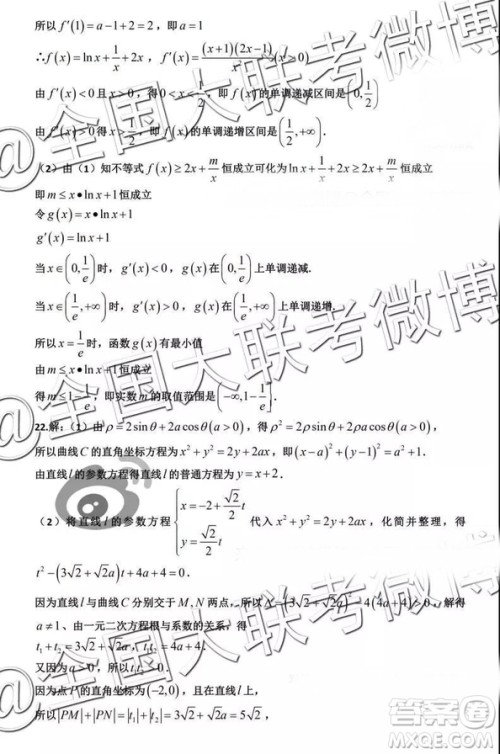 所以 f′(1)=a-1+2=2，即 a=1
∴f(x)=ln x+1/x+2x，f′(x)=(x+1)(2x-1)/x²(x>0)
由 f′(x)<0且x>0，得0<x<1/2，即 f(x)的单调递减区间是(0,1/2)
由 f′(x)>0得x>1/2，即 f(x)的单调递增区间是(1/2,+∞).
（2）由（1）知不等式 f(x)≥2x+m/x 恒成立可化为 ln x+1/x+2x≥2x+m/x 恒成立
即 m≤x•ln x+1恒成立
令 g(x)=x•ln x+1
g′(x)=ln x+1
当 x∈(0,1/e)时，g′(x)<0，g(x)在(0,1/e)上单调递减.
当 x∈(1/e,+∞)时，g′(x)>0，g(x)在(1/e,+∞)上单调递增.
所以 x=1/e时，函数 g(x)有最小值
由 m≤x•ln x+1恒成立
得 m≤1-1/e，即实数 m 的取值范围是(-∞,1-1/e]
22.解：（1）由 ρ=2sinθ+2acosθ(a>0)，得 ρ²=2ρsinθ+2ρacosθ(a>0)，
所以曲线 C 的直角坐标方程为 x²+y²=2y+2ax，即 (x-a)²+(y-1)²=a²+1.
由直线 l 的参数方程得直线 l 的普通方程为 y=x+2.
（2）将直线 l 的参数方程{x=-2+√2/2 t, y=√2/2 t 代入 x²+y²=2y+2ax，化简并整理，得
t²-(3√2+√2a)t+4a+4=0.
因为直线 l 与曲线 C 分别交于 M,N 两点，所以 Δ=(3√2+√2a)²-4(4a+4)>0，解得
a≠1、由一元二次方程根与系数的关系，得
t₁+t₂=3√2+√2a，t₁t₂=4a+4.
又因为 a>0，所以 t₁t₂>0.
因为点 P 的直角坐标为(-2,0)，且在直线 l 上，
所以 |PM|+|PN|=|t₁+t₂|=3√2+√2a=5√2，
@全国大联考微博
@全国大联考微博
@全国大联考微博
答案圈
MXQE.COM